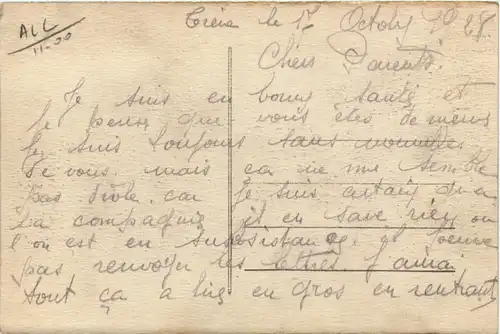 ALL
11-00
le 17 Octobre 1928.
Chers Parents.
Je suis en bonne santé et
je pense que vous êtes de même
Je suis toujours sans nouvelles
de vous. mais ça ne me semble
pas drôle. car je suis certain qu'a
la compagnie il en save rien ou
l'on est en subsistance, il peuve
pas renvoyer les lettres. J'aurai
tout ça a lire en gros en rentrant